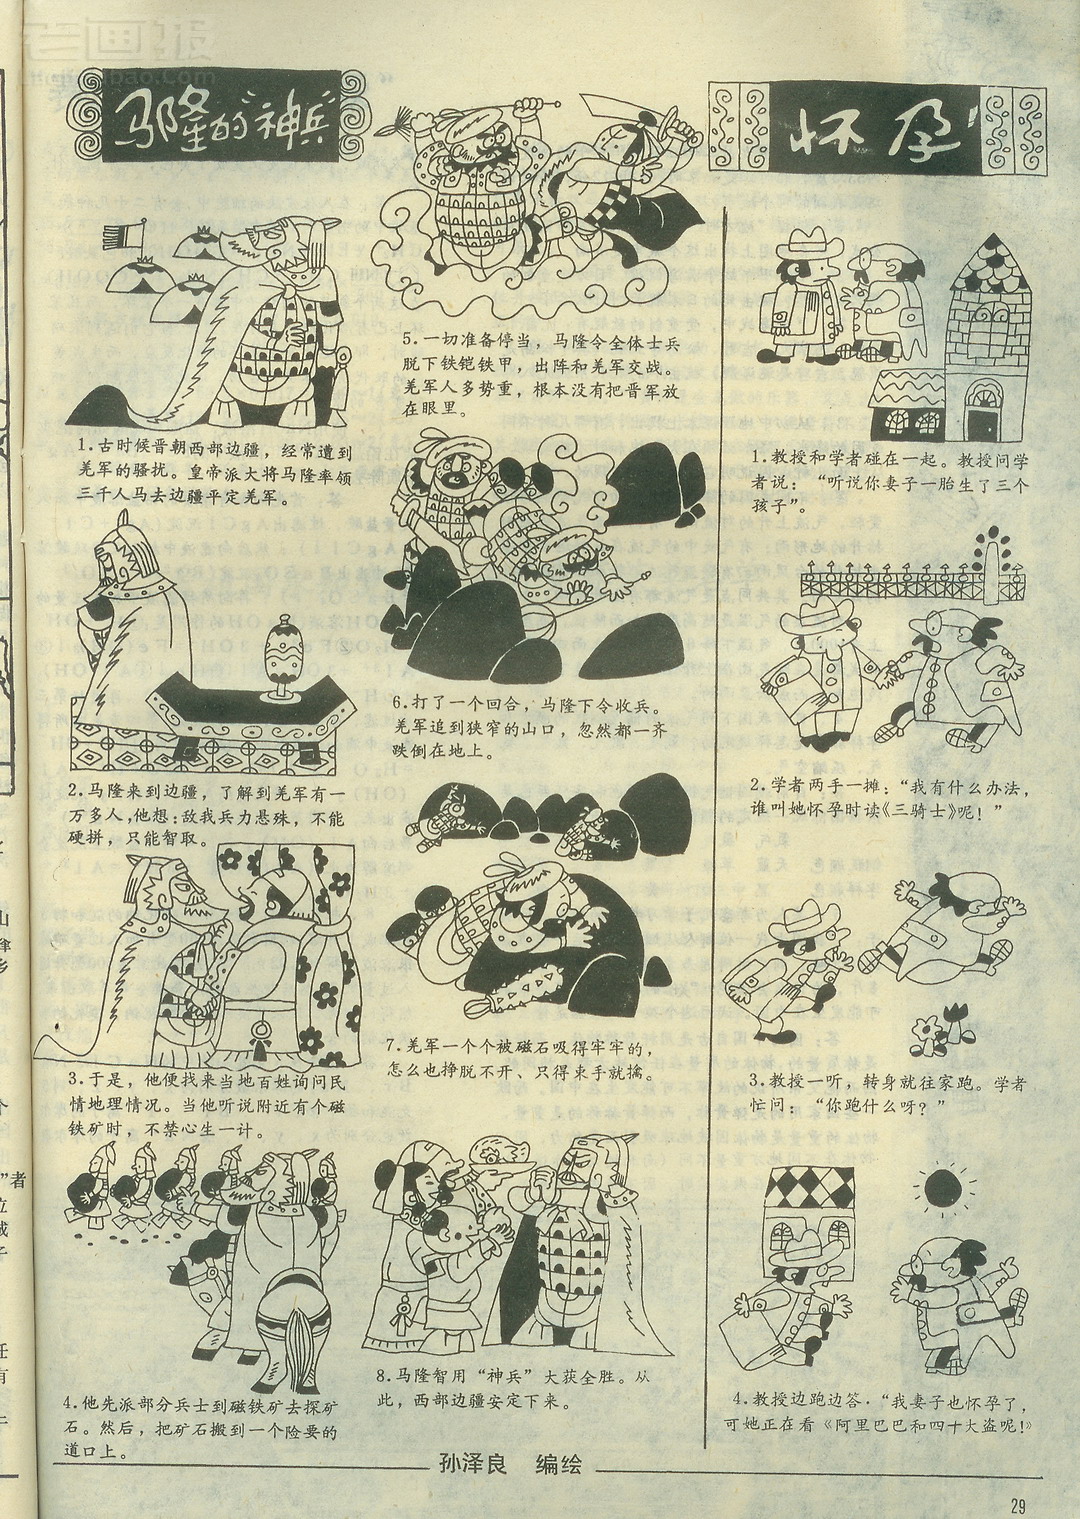 老画报
马隆的“神兵”
1.古时候晋朝西部边疆，经常遭到
羌军的骚扰。皇帝派大将马隆率领
三千人马去边疆平定羌军。
2.马隆来到边疆，了解到羌军有一
万多人，他想：敌我兵力悬殊，不能
硬拼，只能智取。
3.于是，他便找来当地百姓询问民
情地理情况。当他听说附近有个磁
铁矿时，不禁心生一计。
4.他先派部分兵士到磁铁矿去探矿
石。然后，把矿石搬到一个险要的
道口上。
5.一切准备停当，马隆令全体士兵
脱下铁铠铁甲，出阵和羌军交战。
羌军人多势重，根本没有把晋军放
在眼里。
6.打了一个回合，马隆下令收兵。
羌军追到狭窄的山口，忽然都一齐
跌倒在地上。
7.羌军一个个被磁石吸得牢牢的，
怎么也挣脱不开、只得束手就擒。
8.马隆智用“神兵”大获全胜。从
此，西部边疆安定下来。
怀孕
1.教授和学者碰在一起。教授问学
者说：“听说你妻子一胎生了三个
孩子”。
2.学者两手一摊：“我有什么办法，
谁叫她怀孕时读《三骑士》呢！”
3.教授一听，转身就往家跑。学者
忙问：“你跑什么呀？”
4.教授边跑边答·“我妻子也怀孕了，
可她正在看《阿里巴巴和四十大盗呢！》
孙泽良 编绘
29